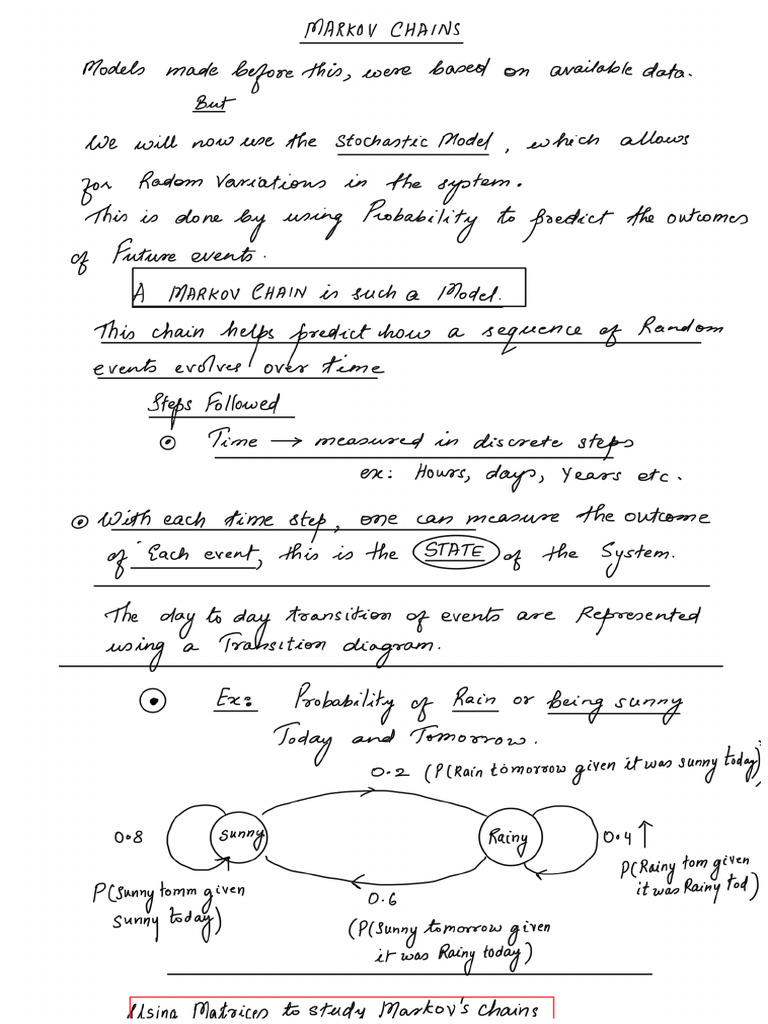 MARKOV CHAINS
Models made before this, were based on available data.
But
We will now use the Stochastic Model, which allows
for Radom Variations in the system.
This is done by using Probability to predict the outcomes
of Future events.
A MARKOV CHAIN is such a Model.
This chain helps predict how a sequence of Random
events evolves over time
Steps Followed
Time → measured in discrete steps
ex: Hours, days, Years etc.
With each time step, one can measure the outcome
of Each event, this is the STATE of the System.
The day to day transition of events are Represented
using a Transition diagram.
Ex: Probability of Rain or being sunny
Today and Tomorrow.
0.2 (P(Rain tomorrow given it was sunny today)
0.8 Sunny Rainy 0.4 ↑
P(Sunny tomm given
sunny today)
P(Rainy tom given
it was Rainy tod)
0.6
(P(Sunny tomorrow given
it was Rainy today)
Using Matrices to study Markov's Chains